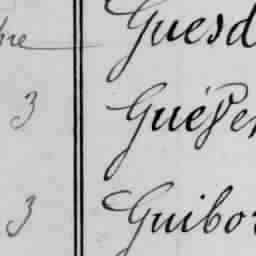 bre Guesd
3 Guéze
3 Guibor